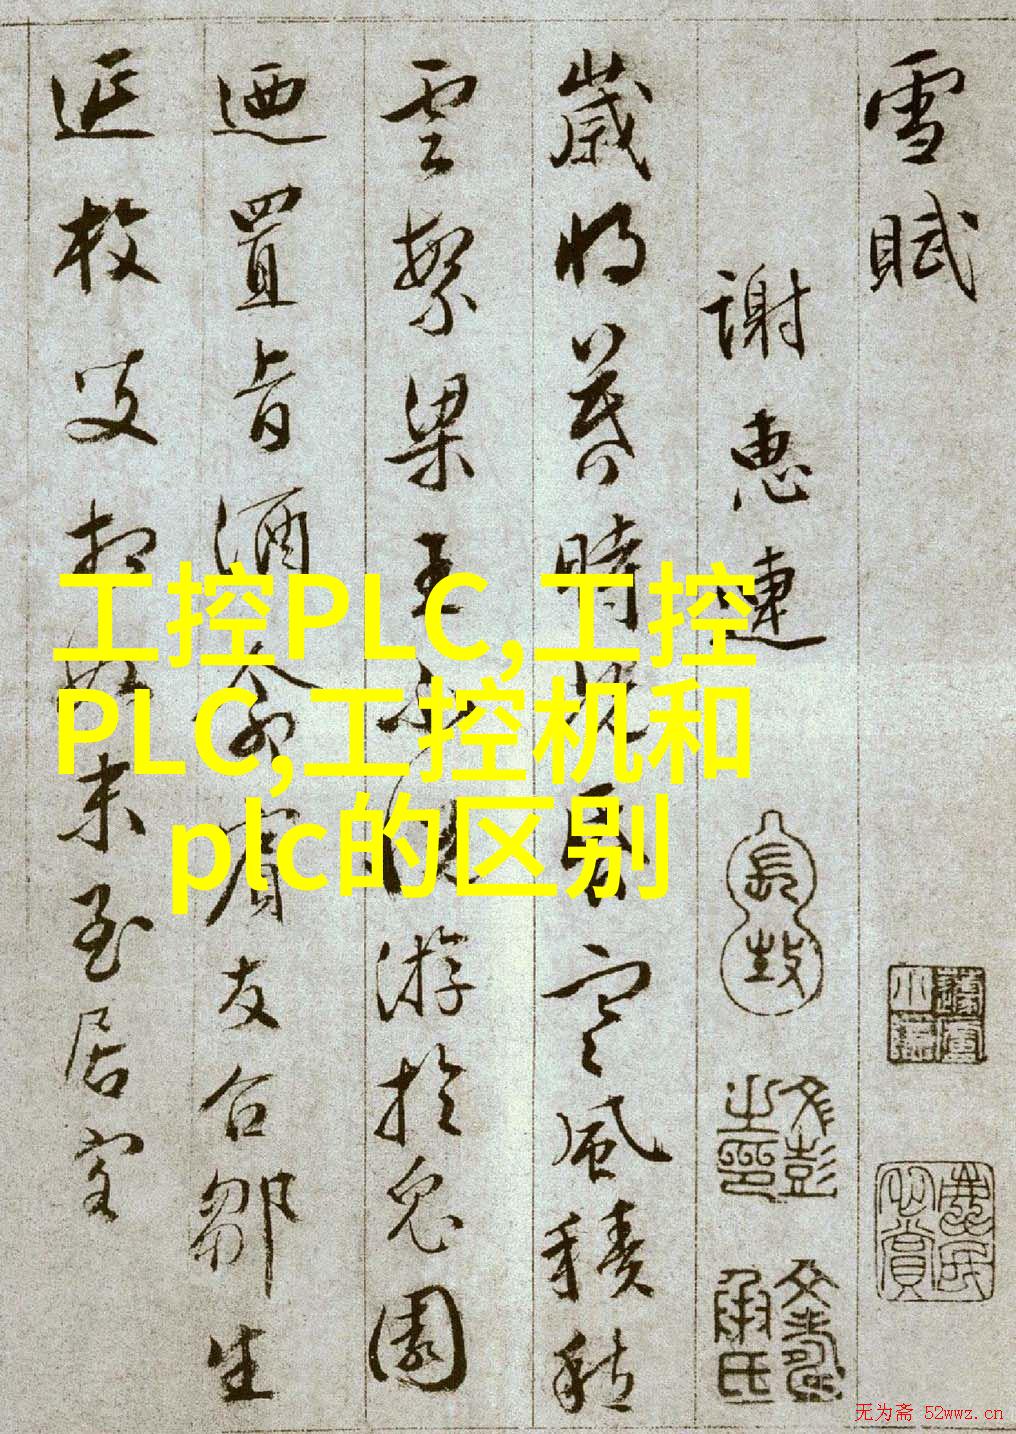 雪賦
謝惠連
歲將暮時既昏寒風積愁
雲繁梁王不悅游於兔園
迺置旨酒命賓友召鄒生
延枚叟相如末至居客
工控PLC,工控
PLC,工控机和
plc的区别
无为斋 52wwz.cn